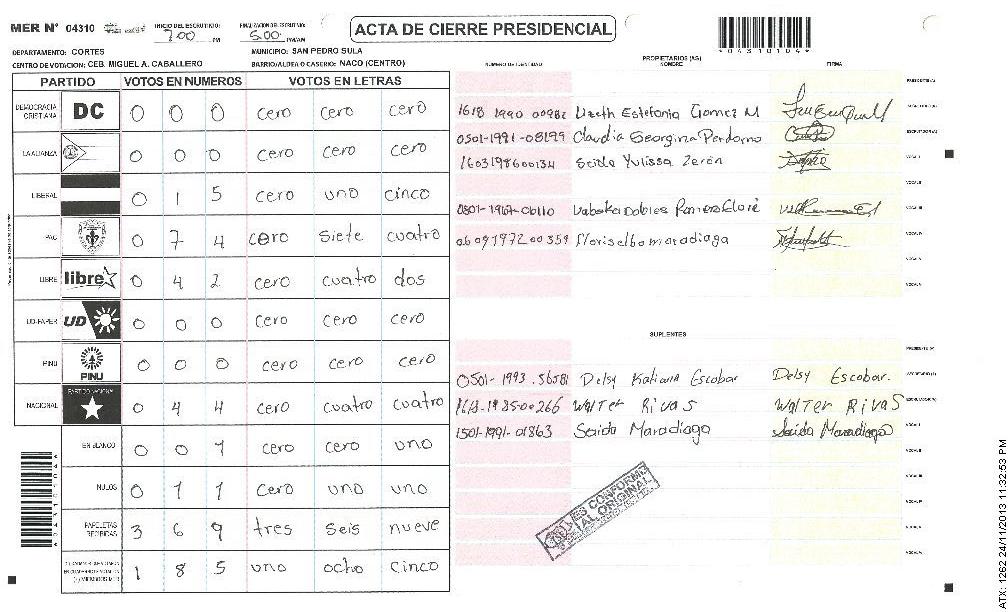 MER N° 04310
INICIO DEL ESCRUTINIO: 7 00 PM
FINALIZACION DEL ESCRUTINIO: 5:00 PM/AM
ACTA DE CIERRE PRESIDENCIAL
*04310104*
DEPARTAMENTO: CORTES
MUNICIPIO: SAN PEDRO SULA
CENTRO DE VOTACION: CEB. MIGUEL A. CABALLERO
BARRIO/ALDEA O CASERIO: NACO (CENTRO)
PARTIDO VOTOS EN NUMEROS VOTOS EN LETRAS
DEMOCRACIA CRISTIANA DC 0 0 0 cero cero cero
LA ALIANZA 0 0 0 cero cero cero
LIBERAL 0 1 5 cero uno cinco
PAC 0 7 4 cero siete cuatro
LIBRE libre 0 4 2 cero cuatro dos
UD-FAPER UD 0 0 0 cero cero cero
PINU PINU 0 0 0 cero cero cero
NACIONAL PARTIDO NACIONAL 0 4 4 cero cuatro cuatro
EN BLANCO 0 0 1 cero cero uno
NULOS 0 1 1 cero uno uno
PAPELETAS RECIBIDAS 3 6 9 tres seis nueve
1 8 5 uno ocho cinco
NUMERO DE IDENTIDAD
PROPIETARIOS (AS)
NOMBRE
FIRMA
1618 1990 00982 Lizeth Estefania Gomez M
0501-1991-08199 Claudia Georgina Perdomo
1603198600134 Yulissa Zerón
0501-1967-06110
0609197200359 maradiaga
SUPLENTES
0501-1993. Delsy Escobar Delsy Escobar.
Walter Rivas Walter Rivas
1501-1991-01863 Saida Maradiaga Saida Maradiaga
ES CONFORME
AL ORIGINAL
ATX: 1262 24/11/2013 11:32:53 PM